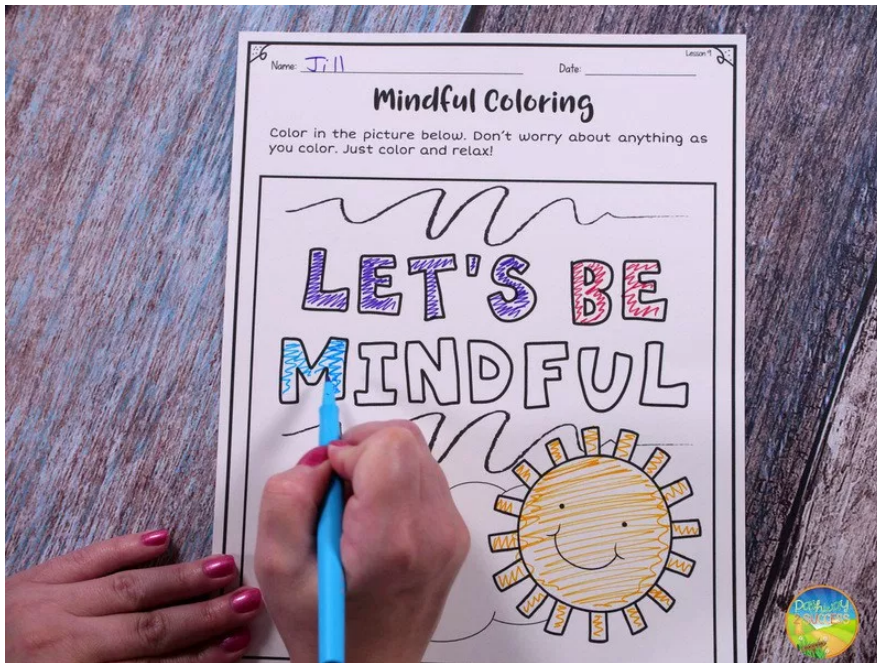 Lesson 9
Name: Jill Date:
Mindful Coloring
Color in the picture below. Don't worry about anything as
you color. Just color and relax!
LET'S BE
MINDFUL
Pathway
2 Success